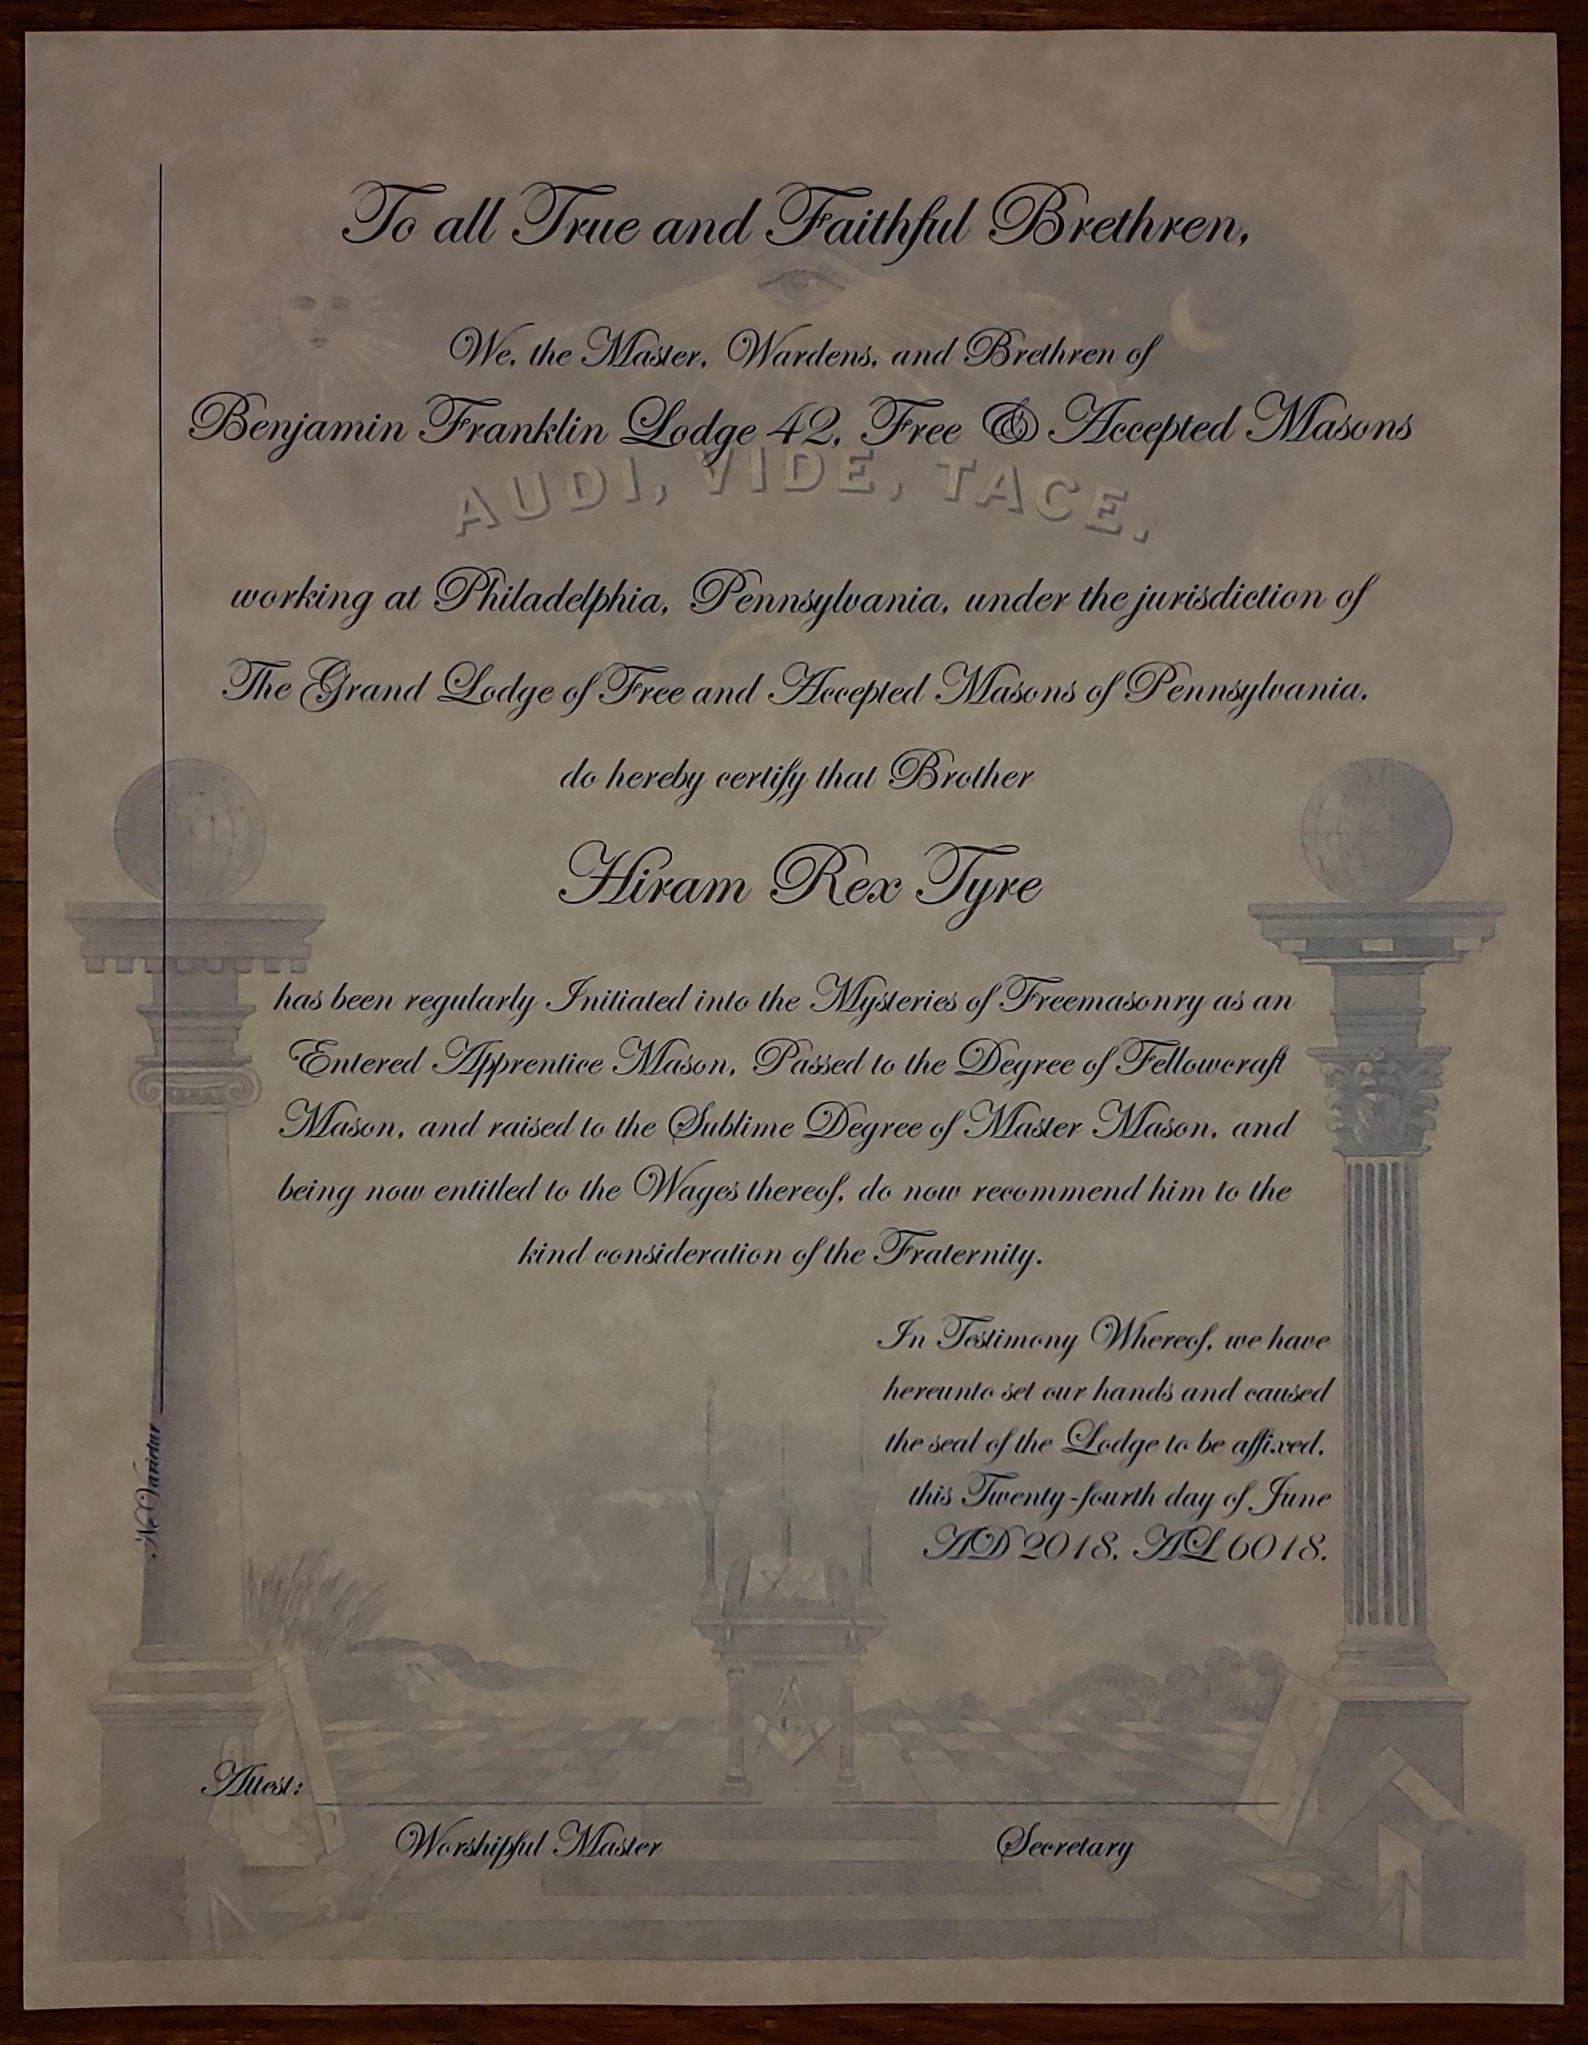 To all True and Faithful Brethren,
We, the Master, Wardens, and Brethren of
Benjamin Franklin Lodge 42, Free & Accepted Masons
AUDI, VIDE, TACE.
working at Philadelphia, Pennsylvania, under the jurisdiction of
The Grand Lodge of Free and Accepted Masons of Pennsylvania,
do hereby certify that Brother
Hiram Rex Tyre
has been regularly Initiated into the Mysteries of Freemasonry as an
Entered Apprentice Mason, Passed to the Degree of Fellowcraft
Mason, and raised to the Sublime Degree of Master Mason, and
being now entitled to the Wages thereof, do now recommend him to the
kind consideration of the Fraternity.
In Testimony Whereof, we have
hereunto set our hands and caused
the seal of the Lodge to be affixed,
this Twenty-fourth day of June
AD 2018, AL 6018.
Ne Varietur
Attest:
Worshipful Master
Secretary